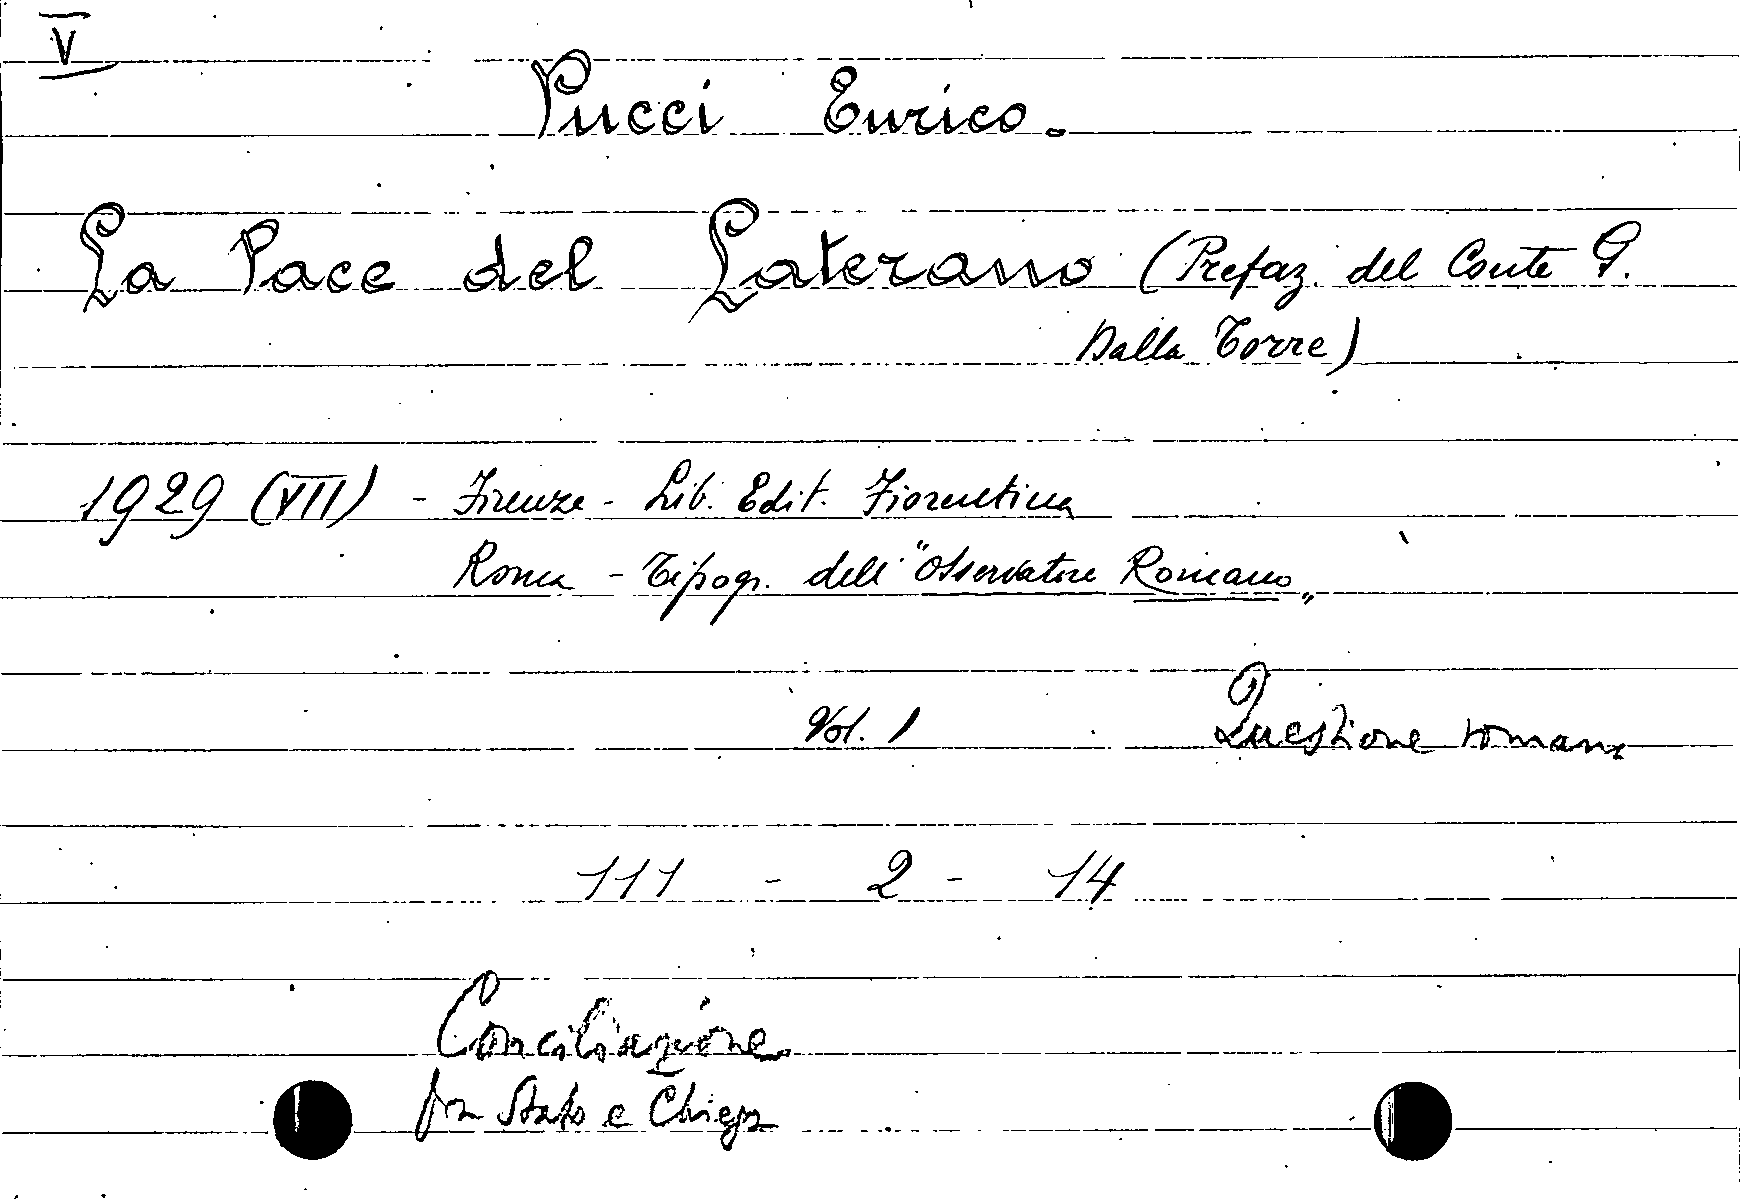 V
Pucci Enrico.
La Pace del Laterano (Prefaz. del Conte G.
Dalla Torre)
1929 (VII) - Firenze - Lib. Edit. Fiorentina
Roma - Tipogr. dell' "Osservatore Romano„
Vol. 1 Questione romana
111 - 2 - 14
Conciliazione
fra Stato e Chiesa